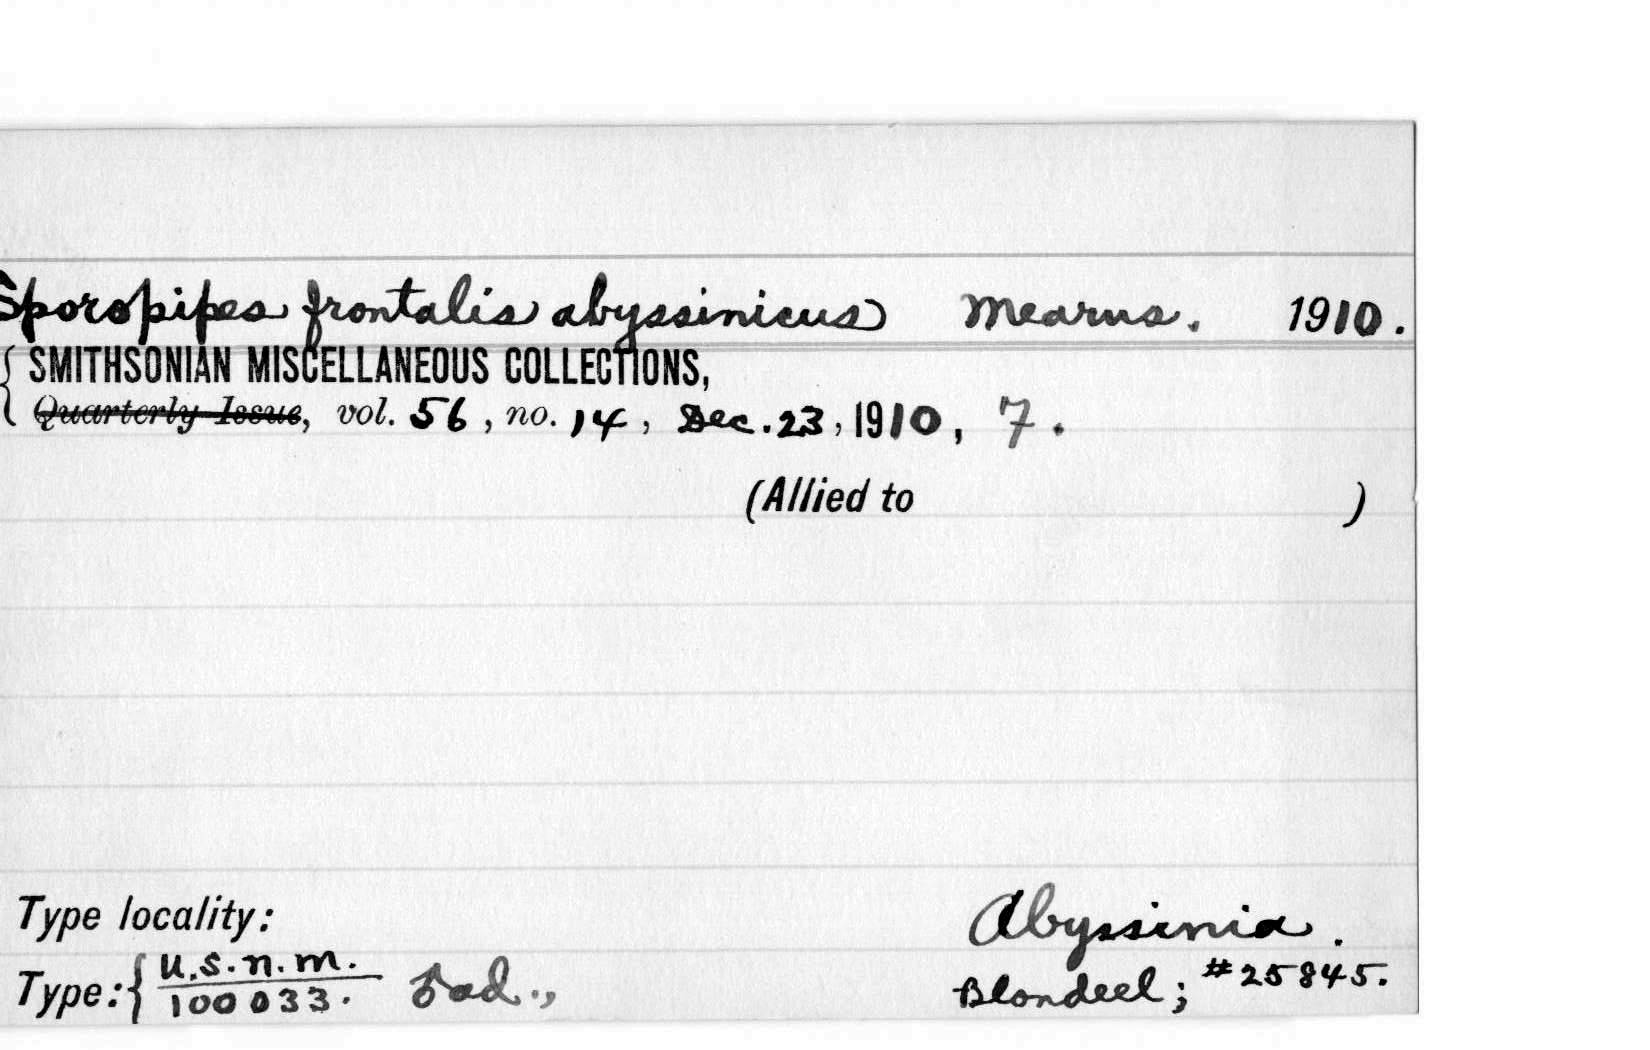 Sporopipes frontalis abyssinicus Mearns. 1910.
{ SMITHSONIAN MISCELLANEOUS COLLECTIONS,
Quarterly Issue, vol. 56, no. 14, Dec. 23, 1910, 7.
(Allied to )
Type locality: Abyssinia.
Type: { U.S.N.M. 100033. ♂ad., Blondeel; #25845.